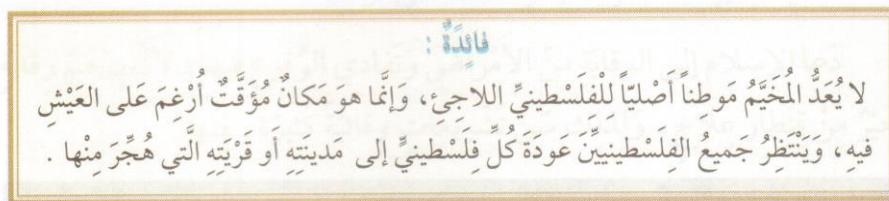 فائِدَةٌ :
لا يُعَدُّ المُخَيَّمُ مَوطناً أصليّاً لِلْفَلَسْطينيِّ اللاجئِ، وَإنَّما هوَ مَكانٌ مُؤَقَّتٌ أُرْغِمَ عَلى العَيْشِ
فيهِ، وَيَنْتَظِرُ جَميعُ الفِلَسْطينيينَ عَودَةَ كُلِّ فِلَسْطينيٍّ إلى مَدينتِهِ أو قَرْيَتِهِ الَّتي هُجِّرَ مِنْها .